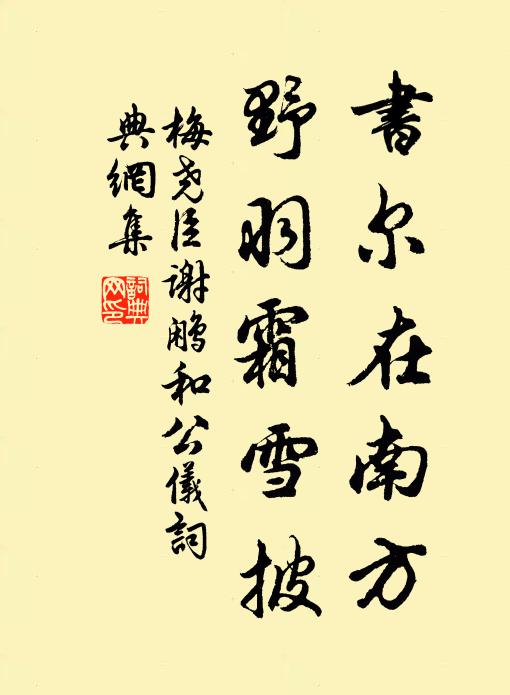 書尔在南方
野羽霜雪披
梅尧臣謝鷴和公儀詞
典網集
詞典
网印